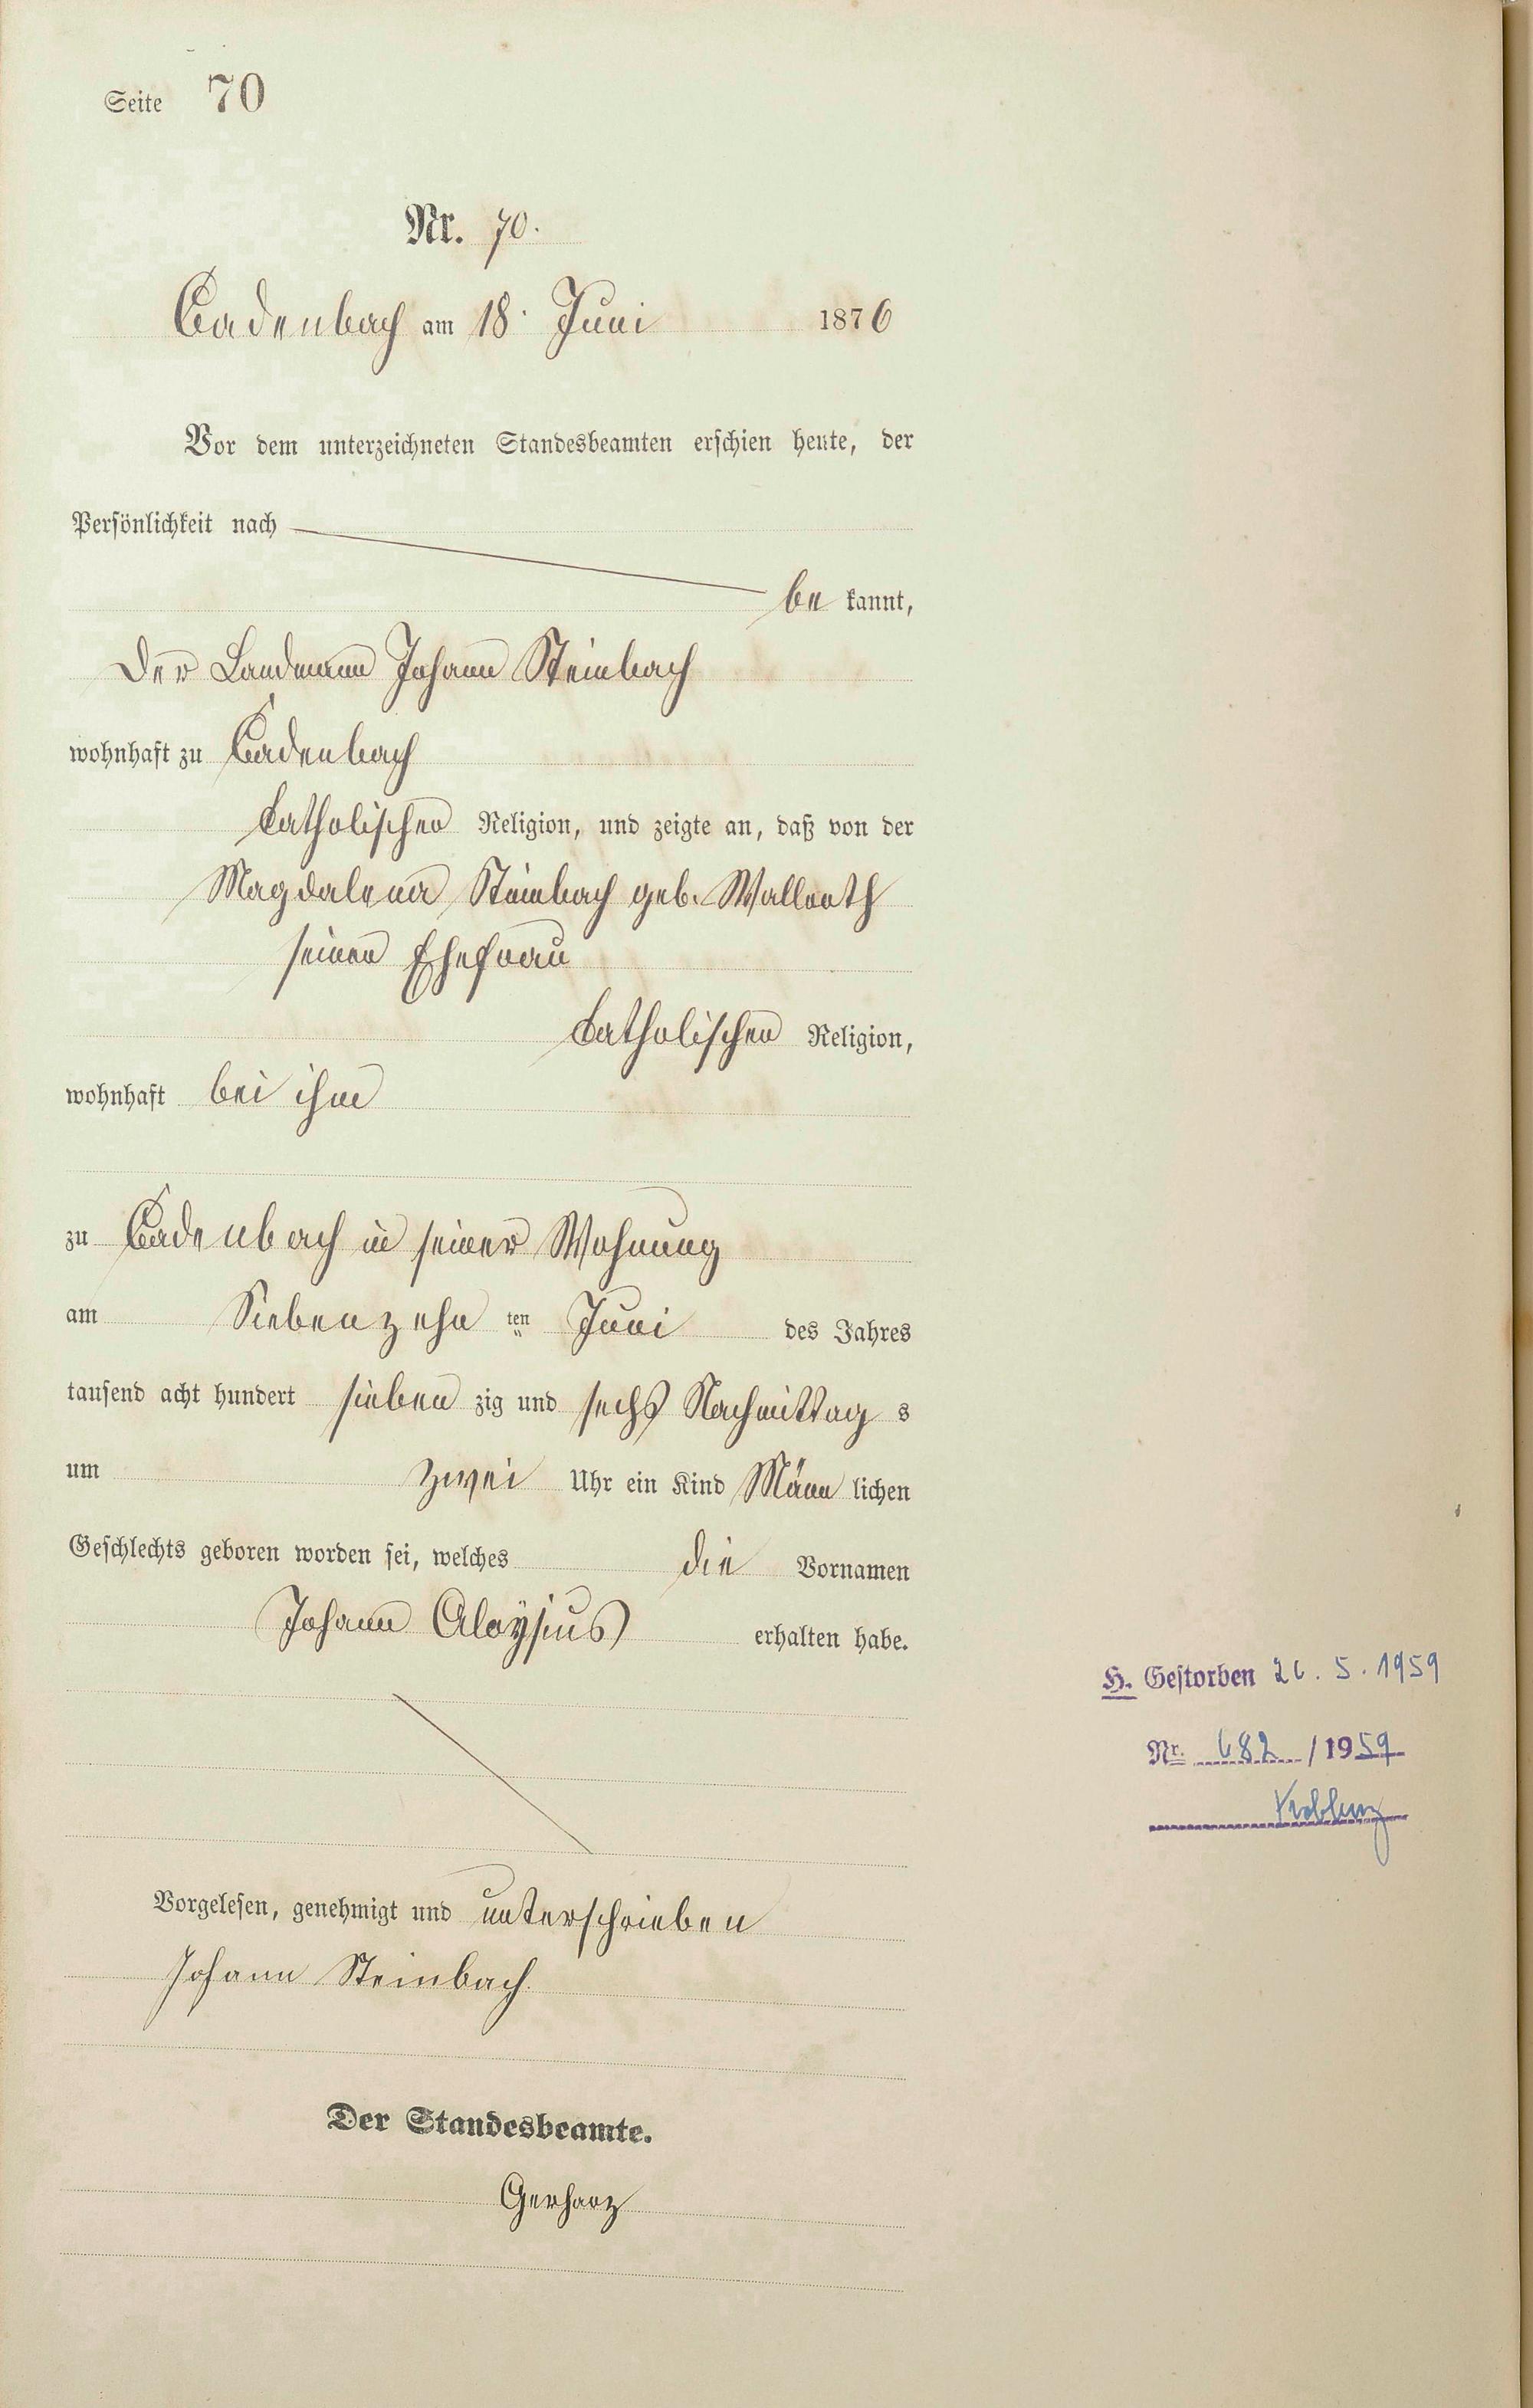 Seite 70
Nr. 70.
Cadenbach am 18. Juni 1876
Vor dem unterzeichneten Standesbeamten erschien heute, der
Persönlichkeit nach
be kannt,
der Landmann Johann Steinbach
wohnhaft zu Cadenbach
katholischer Religion, und zeigte an, daß von der
Magdalena Steinbach geb. Wallroth
seiner Ehefrau
katholischer Religion,
wohnhaft bei ihm
zu Cadenbach in seiner Wohnung
am Siebenzehn ten Juni des Jahres
tausend acht hundert sieben zig und sechs Nachmittag s
um zwei Uhr ein Kind Männ lichen
Geschlechts geboren worden sei, welches die Vornamen
Johann Aloysius erhalten habe.
H. Gestorben 26. 5. 1959
Nr. 682 / 1959
Koblenz
Vorgelesen, genehmigt und unterschrieben
Johann Steinbach.
Der Standesbeamte.
Gerharz